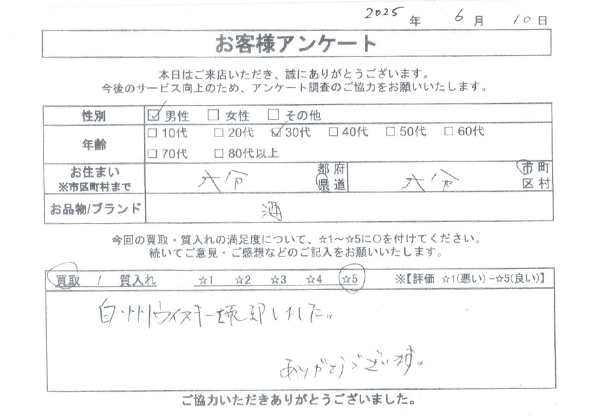 2025年 6月 10日
お客様アンケート
本日はご来店いただき、誠にありがとうございます。
今後のサービス向上のため、アンケート調査のご協力をお願いいたします。
性別 ☑男性 □女性 □その他
年齢 □10代 □20代 ☑30代 □40代 □50代 □60代
□70代 □80代以上
お住まい ※市区町村まで 大分 都府県道 大分 市町区村
お品物/ブランド 酒
今回の買取・質入れの満足度について、☆1~☆5に○を付けてください。
続いてご意見・ご感想などのご記入をお願いいたします。
買取 / 質入れ ☆1 ☆2 ☆3 ☆4 ☆5 ※【評価:☆1(悪い)-☆5(良い)】
白州ウイスキーを売却しました。
ありがとうございます。
ご協力いただきありがとうございました。